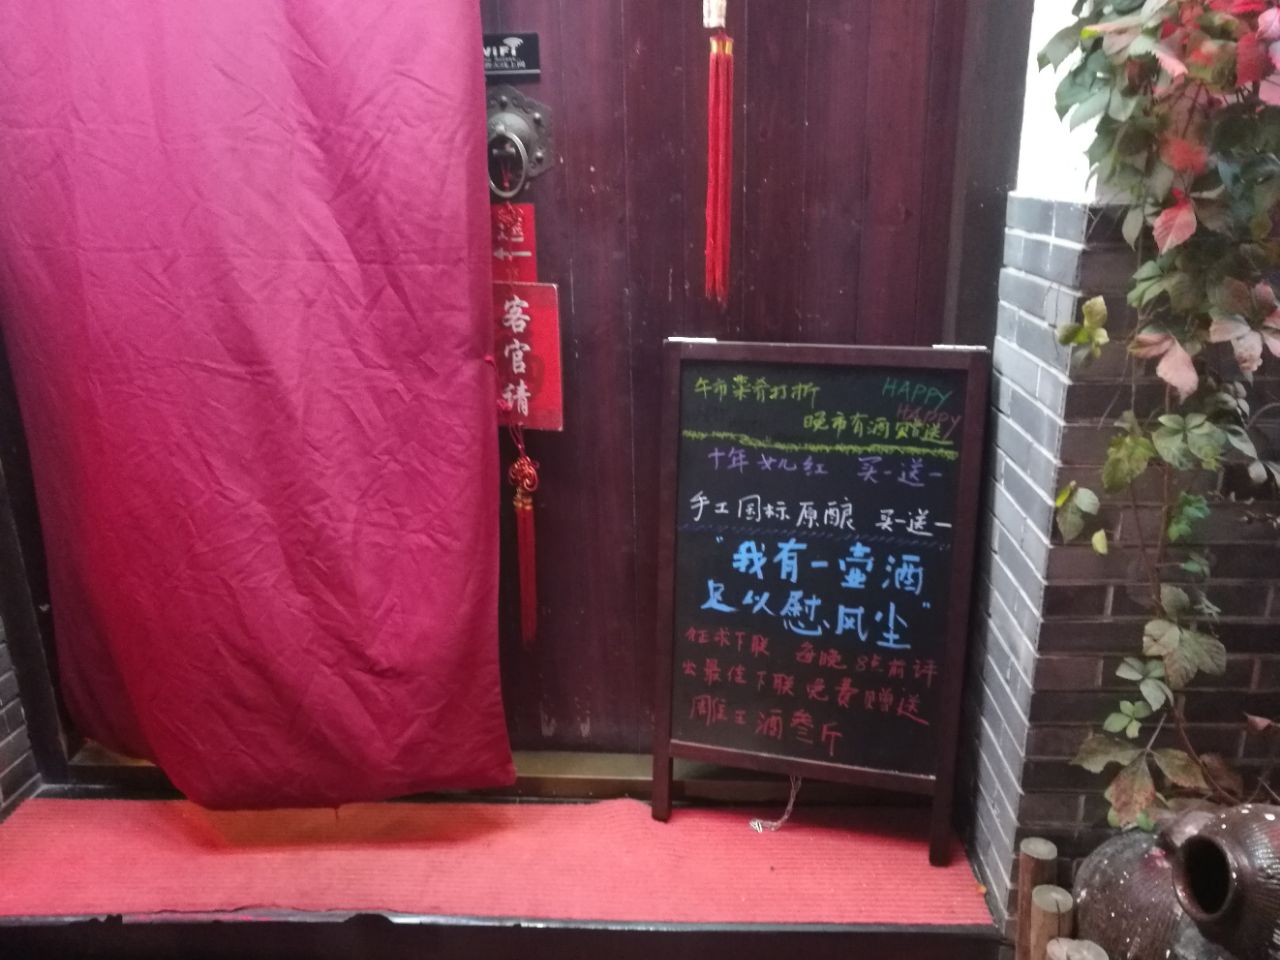 WIFI
客官请
進
午市菜肴打折
HAPPY
HAPPY
晚市有酒赠送
十年女儿红 买一送一
手工国标原酿 买一送一
"我有一壶酒
足以慰风尘"
征求下联 每晚8点前评
出最佳下联免费赠送
雕王酒叁斤